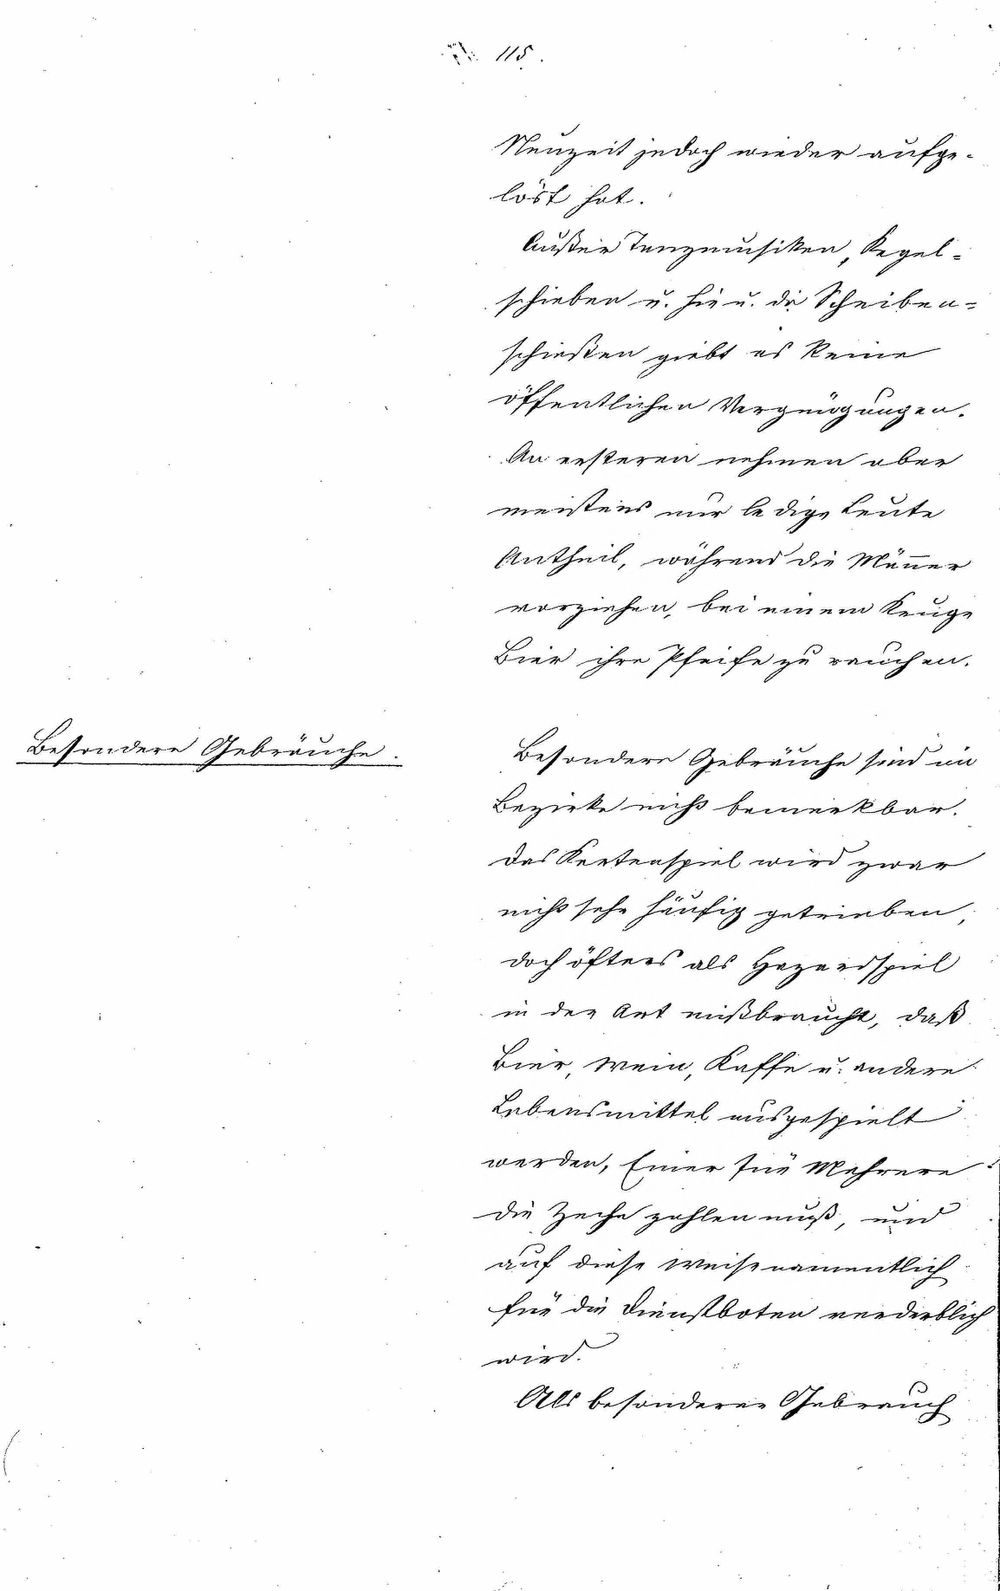 115.
Neuzeit jedoch wieder aufge-
löst hat.
Außer Tanzmusiken, Kegel-
schieben u. hie u. da Scheiben-
schießen giebt es keine
öffentlichen Vergnügungen.
An ersteren nehmen aber
meistens nur ledige Leute
Antheil, während die Männer
vorziehen, bei einem Kruge
Bier ihre Pfeife zu rauchen.
Besondere Gebräuche.
Besondere Gebräuche sind im
Bezirke nicht bemerkbar.
Das Kartenspiel wird zwar
nicht sehr häufig getrieben,
doch öfters als Hazardspiel
in der Art mißbraucht, daß
Bier, Wein, Kaffe u. andere
Lebensmittel ausgespielt
werden, Einer für Mehrere
die Zeche zahlen muß, und
auf diese Weise namentlich
für die Dienstboten verderblich
wird.
Als besonderer Gebrauch